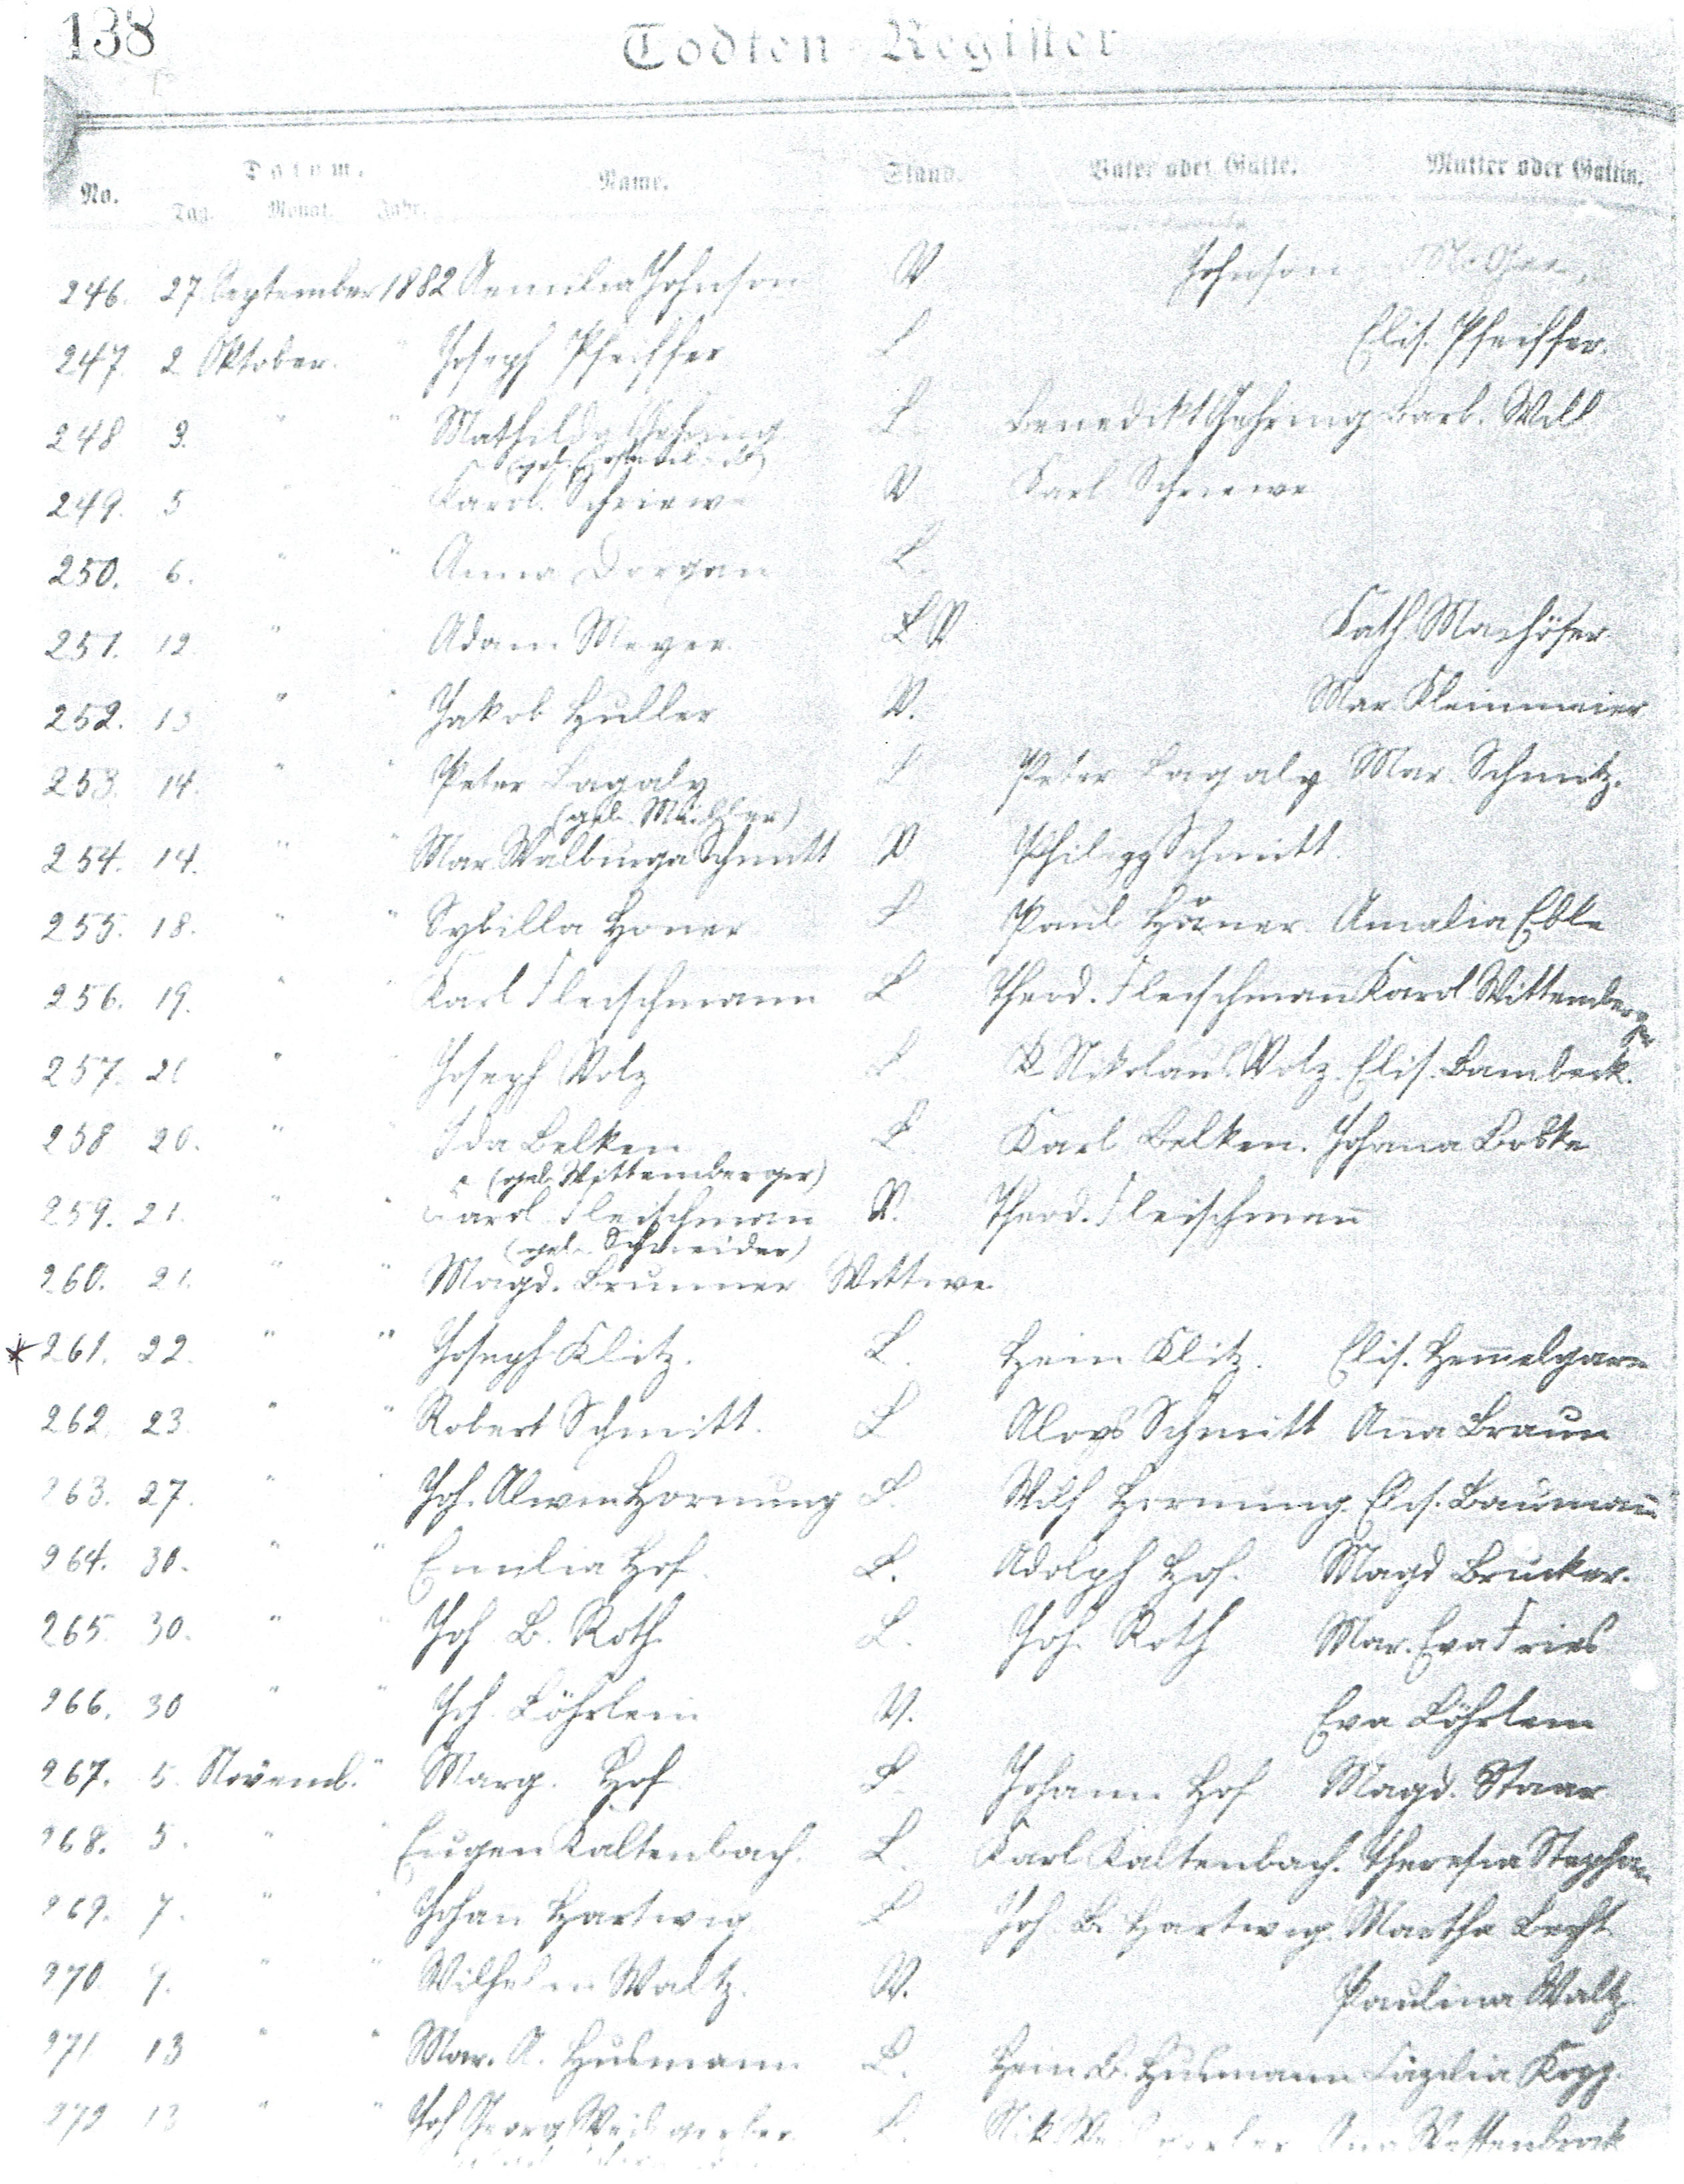 138
Todten-Register
Datum.
No. Tag. Monat. Jahr. Name. Stand. Vater oder Gatte. Mutter oder Gattin.
246. 27 September 1882 Aemilia Johnson V Johnson
247. 2 Oktober. " Joseph Pfeiffer L Elis. Pfeiffer.
248 3. " " Mathilde Gehring L. Benedikt Gehring Barb. Will
249. 5 " " Karol. Schriewe V Karl Schriewe
250. 6. " " Anna Dorgan L.
251. 12. " " Adam Meyer. L V Kath. Maihöfer
252. 13 " " Jakob Huller V. Mar. Kleinmeier
253. 14. " " Peter Lagaly L Peter Lagaly Mar. Schmitz.
(geb. Müller)
254. 14. " " Mar. Walburga Schmitt V Philipp Schmitt.
255. 18. " " Sybilla Honer L Paul Honer Amalia Eble
256. 19. " " Karl Fleischmann L Theod. Fleischmann Karol Wittemberger
257. 21 " " Joseph Volz L Nikolaus Volz Elis. Bambeck.
258 20. " " Ida Belken L Karl Belken. Johana Boste
(geb. Wittemberger)
259. 21. " " Karol. Fleischmann V. Theod. Fleischmann
(geb. Schneider)
260. 21. " " Magd. Brunner Wittwe.
* 261. 22. " " Joseph Klitz. L. Hein Klitz. Elis. Hemmelgarn
262. 23. " " Robert Schmitt. L Aloys Schmitt Anna Braun
263. 27. " " Joh. Alwin Hornung L. Wilh Hornung. Elis. Baumann
264. 30. " " Emilia Hof. L. Adolph Hof. Magd Brucker.
265. 30. " " Joh. B. Roth. L. Joh. Roth Mar. Eva Fries
266. 30 " " Joh. Löhrlein V. Eva Löhrlein
267. 5. Novemb. " Marg. Hof L. Johann Hof Magd. Staar
268. 5. " " Eugen Kaltenbach. L. Karl Kaltenbach. Theresia Stephan
269. 7. " " Johan Hartwig L Joh. B. Hartwig. Martha Becht
270. 9. " " Wilhelm Waltz. V. Paulina Waltz.
271 13 " " Mar. A. Husmann L. Hein B. Husmann Cäzilia Kopp.
272 13 " " Joh Georg Weisgerber L. Nik Weisgerber